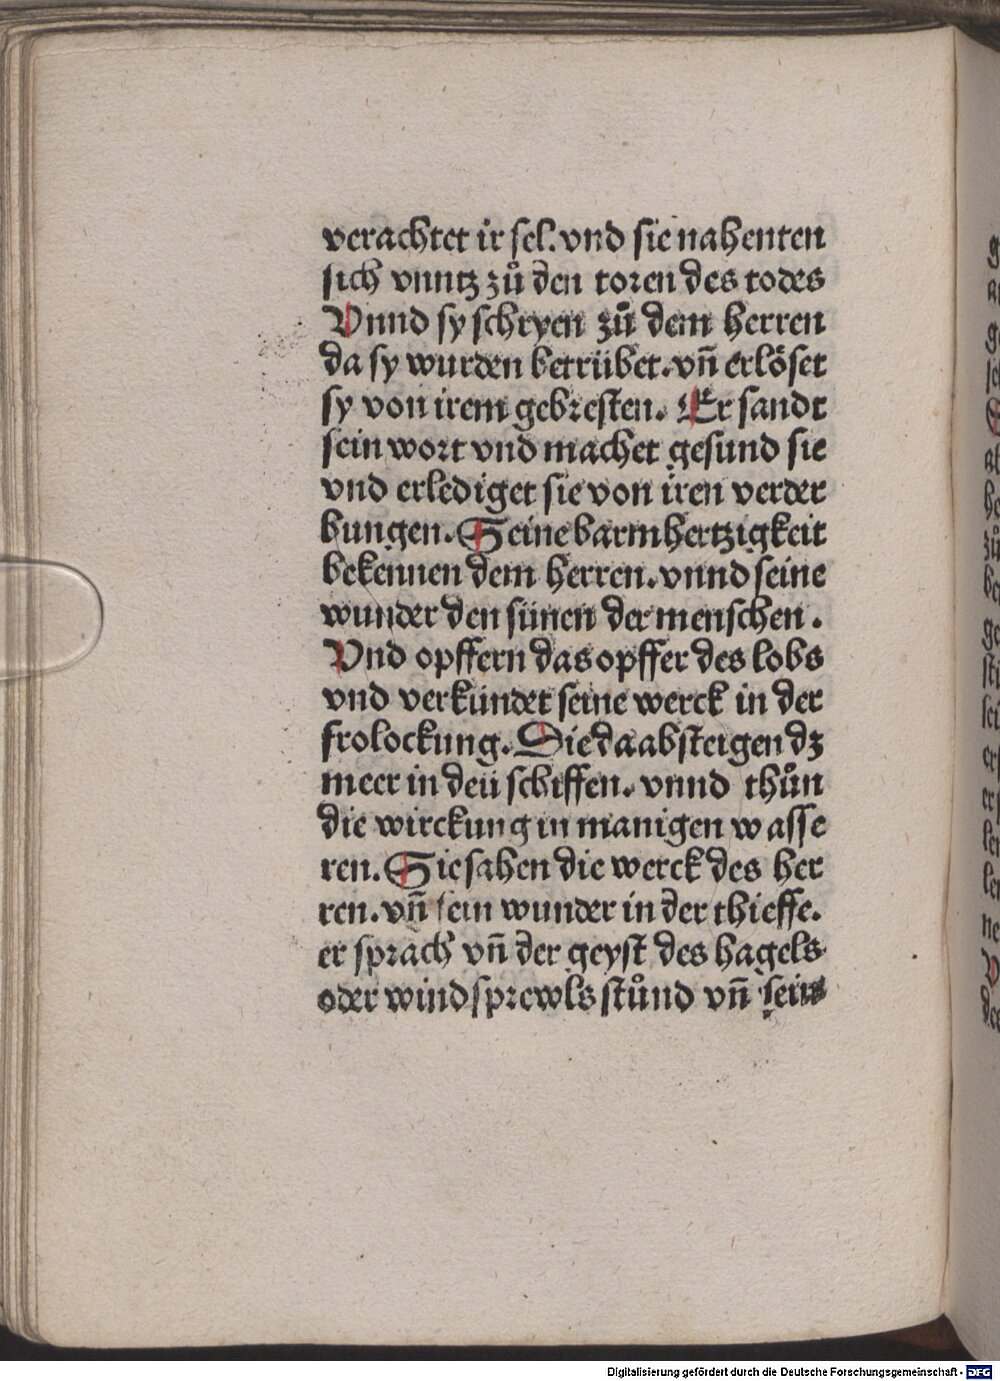 verachtet ir sel. vnd sie nahenten
sich vnntz zů den toren des todes
Vnnd sy schryen zů dem herren
da sy wurden betrübet. vn̄ erlöset
sy von irem gebresten. Er sandt
sein wort vnd machet gesund sie
vnd erlediget sie von iren verder
bungen. Seine barmhertzigkeit
bekennen dem herren. vnnd seine
wunder den sünen der menschen.
Vnd opffern das opffer des lobs
vnd verkündet seine werck in der
frolockung. Die da absteigen dz
meer in den schiffen. vnnd thůn
die wirckung in manigen wasse
ren. Sie sahen die werck des her
ren. vn̄ sein wunder in der thieffe.
er sprach vn̄ der geyst des hagels
oder windsprewls stůnd vn̄ seine
Digitalisierung gefördert durch die Deutsche Forschungsgemeinschaft - DFG